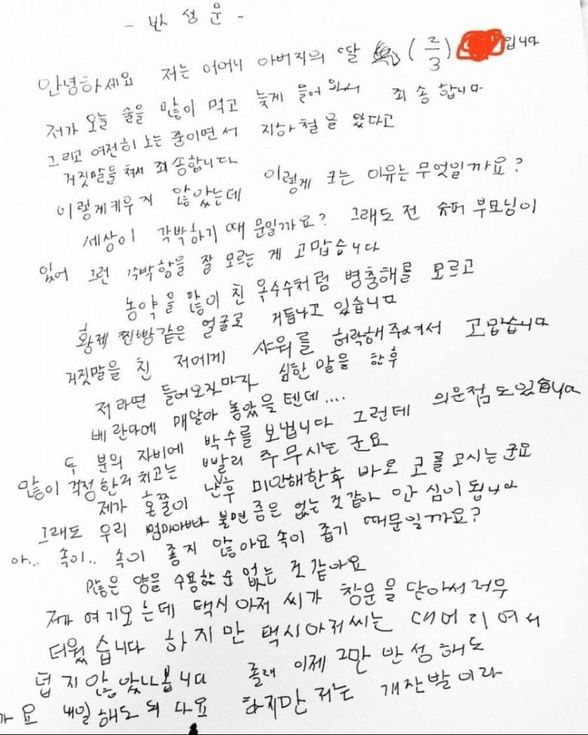 - 반성문 -
안녕하세요 저는 어머니 아버지의 딸 (2/3) 입니다
저가 오늘 술을 많이 먹고 늦게 들어와서 죄송합니다
그리고 여전히 노는 중이면서 지하철을 탔다고
거짓말을 쳐서 죄송합니다
이렇게키우지 않았는데 이렇게 크는 이유는 무엇일까요?
세상이 각박하기 때문일까요? 그래도 전 슈퍼 부모님이
있어 그런 각박함을 잘 모르는 게 고맙습니다
농약을 많이 친 옥수수처럼 병충해를 모르고
황제 찐빵같은 얼굴로 거듭나고 있습니다
거짓말을 친 저에게 샤워를 허락해주셔서 고맙습니다
저라면 들어오자마자 심한 말을 한후
베란다에 매달아 놓았을텐데....
두 분의 자비에 박수를 보냅니다 그런데 의문점도있습니다
많이 걱정한거 치고는 빨리 주무시는군요
제가 혼쭐이 난후 미안해한후 바로 코를 고시는군요
그래도 우리 엄마아빠가 불면증은 없는것같아 안심이됩니다
아... 속이.. 속이 좋지 않아요 속이 좁기 때문일까요?
많은 양을 수용할순 없는 것 같아요
제가 여기오는데 택시아저씨가 창문을 닫아서 너무
더웠습니다 하지만 택시아저씨는 대머리여서
덥지않았나봅니다 졸려 이제 그만 반성해도
가요 내일해도 되나요 하지만 저는 개잔발이라